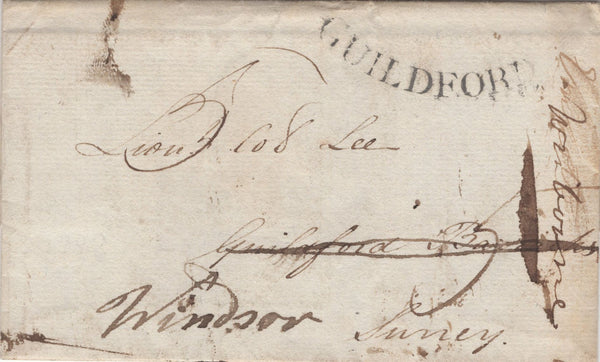 GUILDFORD
Lieu.t Col Lee
Guildford Barracks
Windsor Surrey.